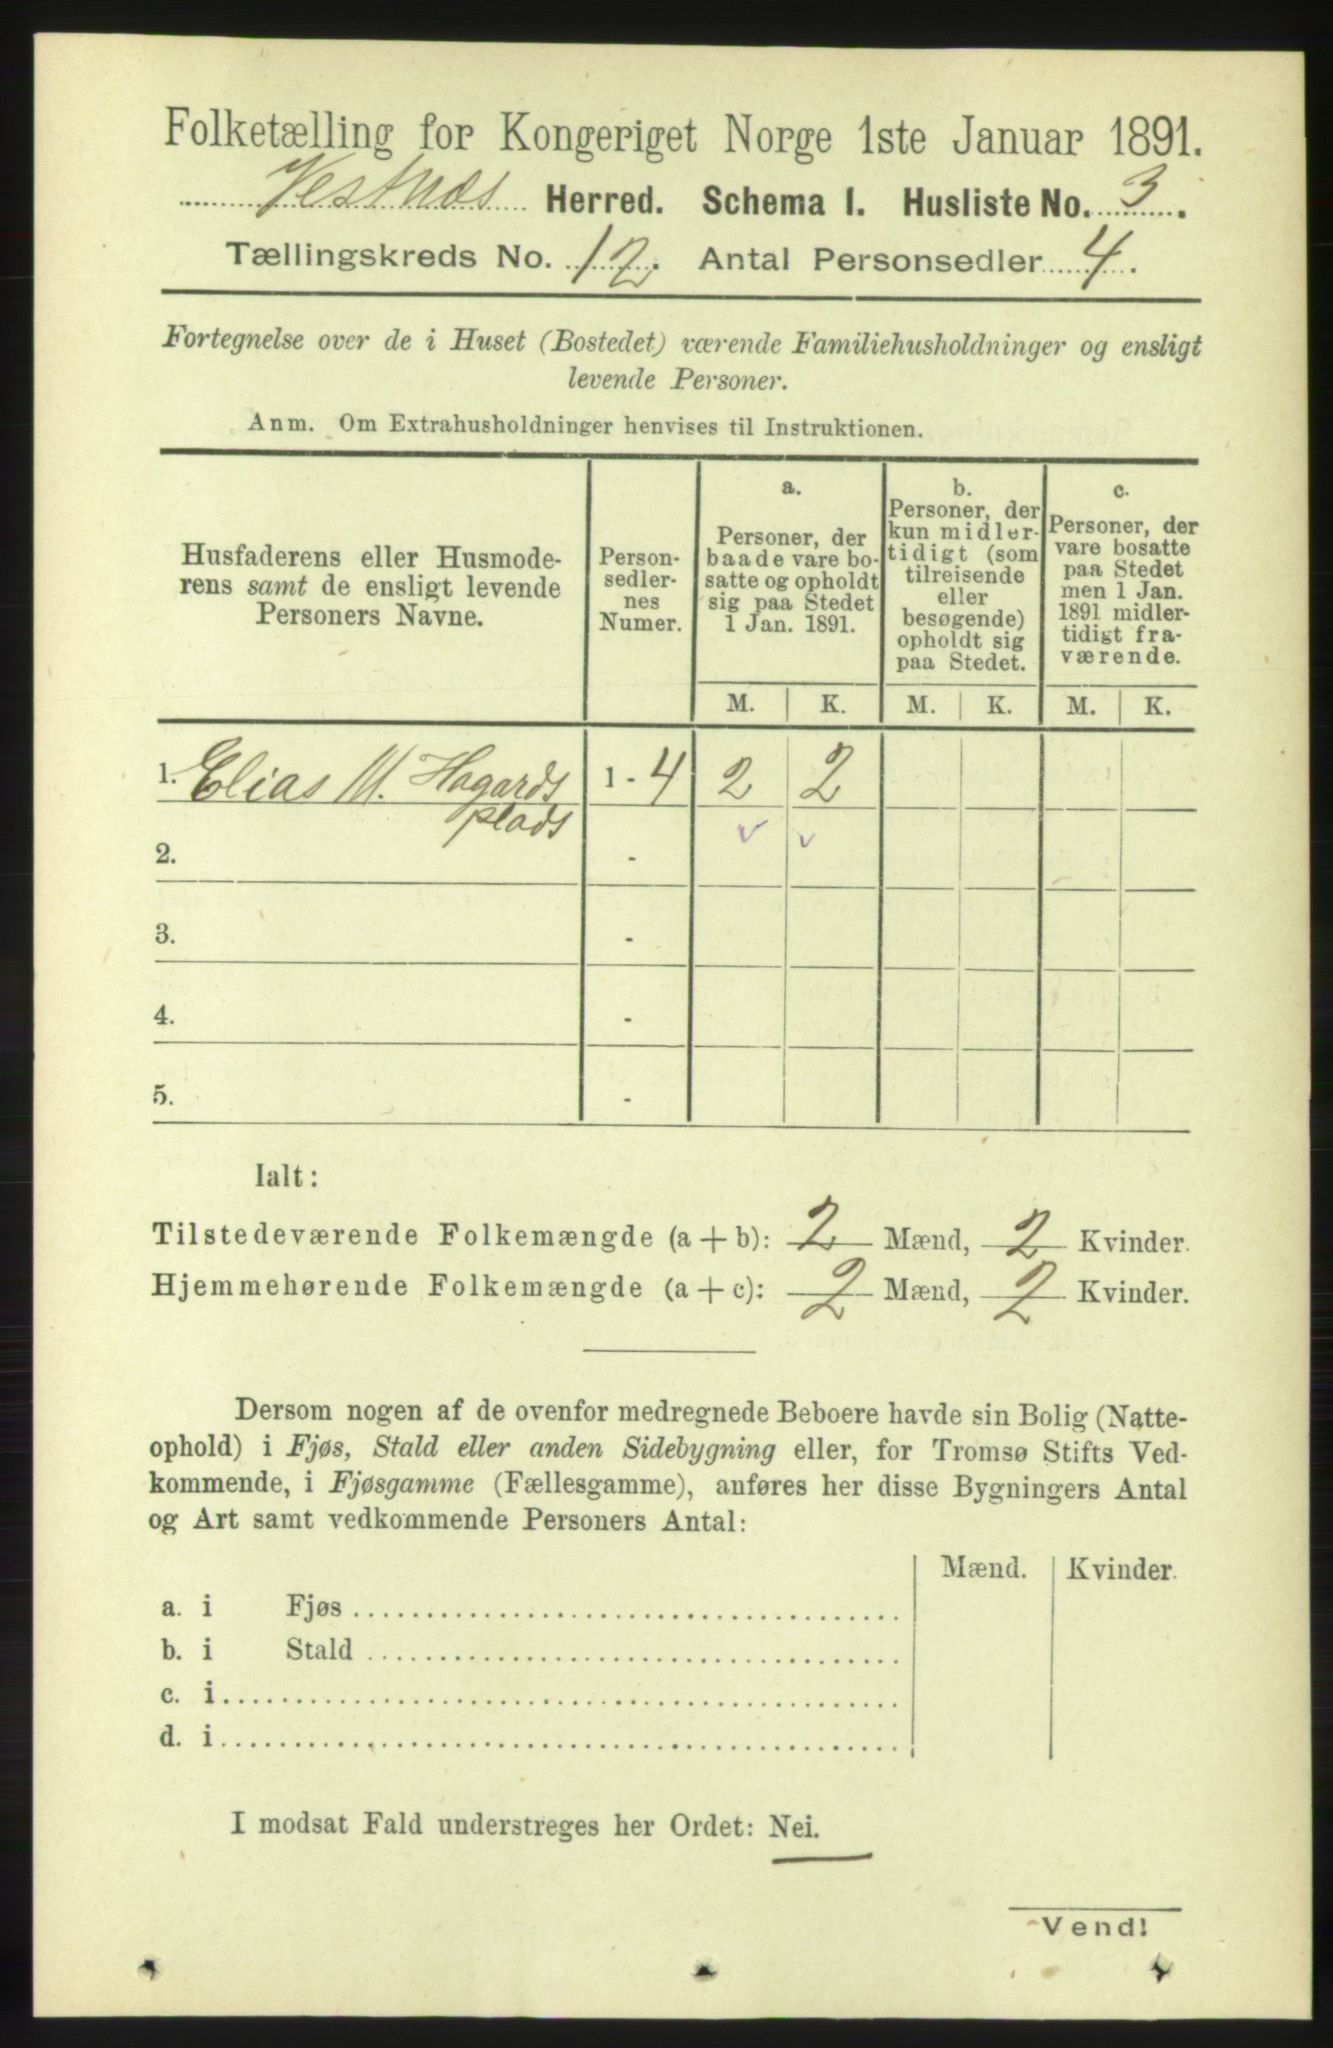 Folketælling for Kongeriget Norge 1ste Januar 1891.
Vestnæs Herred. Schema I. Husliste No. 3.
Tællingskreds No. 12. Antal Personsedler 4.
Fortegnelse over de i Huset (Bostedet) værende Familiehusholdninger og ensligt
levende Personer.
Anm. Om Extrahusholdninger henvises til Instruktionen.
Husfaderens eller Husmode-
rens samt de ensligt levende
Personers Navne.
Person-
sedler-
nes
Numer.
a.
Personer, der
baade vare bo-
satte og opholdt
sig paa Stedet
1 Jan. 1891.
b.
Personer, der
kun midler-
tidigt (som
tilreisende
eller
besøgende)
opholdt sig
paa Stedet.
c.
Personer, der
vare bosatte
paa Stedet
men 1 Jan.
1891 midler-
tidigt fra-
værende.
M. K. M. K. M. K.
1. Elias M. Hagards 1 - 4 2 2
plads
2. -
3. -
4. -
5. -
Ialt:
Tilstedeværende Folkemængde (a + b): 2 Mænd, 2 Kvinder.
Hjemmehørende Folkemængde (a + c): 2 Mænd, 2 Kvinder.
Dersom nogen af de ovenfor medregnede Beboere havde sin Bolig (Natte-
ophold) i Fjøs, Stald eller anden Sidebygning eller, for Tromsø Stifts Ved-
kommende, i Fjøsgamme (Fællesgamme), anføres her disse Bygningers Antal
og Art samt vedkommende Personers Antal:
Mænd. Kvinder.
a. i Fjøs
b. i Stald
c. i
d. i
I modsat Fald understreges her Ordet: Nei.
Vend!